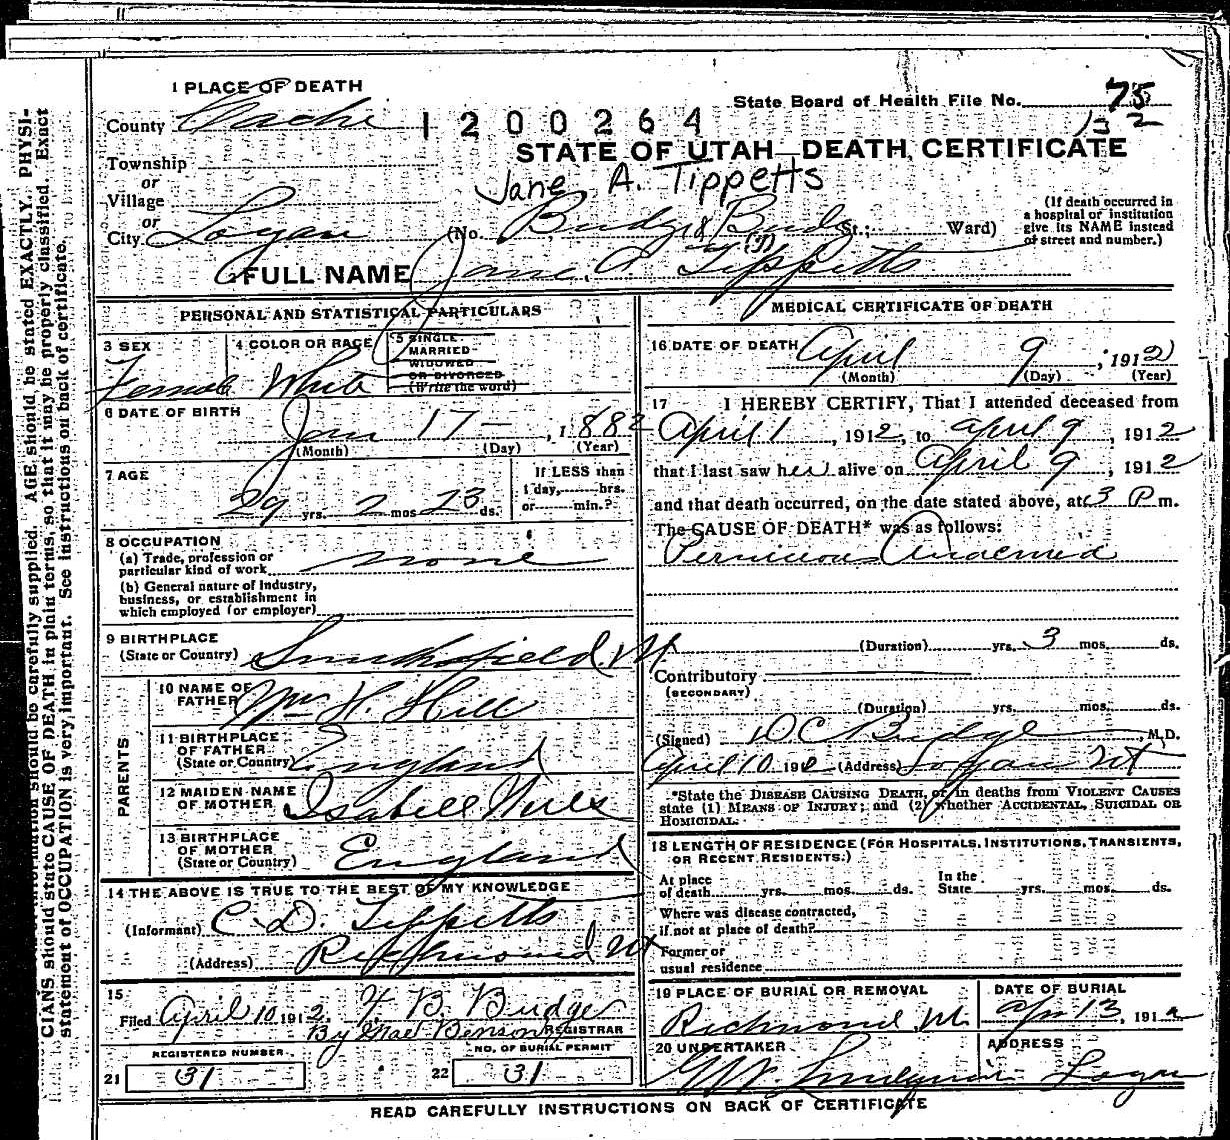 1 PLACE OF DEATH
State Board of Health File No. 75
132
County Cache 1200264
STATE OF UTAH—DEATH CERTIFICATE
Township
or
Village
or
City Logan
Jane A. Tippetts
(No. Budge St.; Ward)
(If death occurred in a hospital or institution give its NAME instead of street and number.)
FULL NAME Jane A. Tippetts
PERSONAL AND STATISTICAL PARTICULARS
3 SEX
Female
4 COLOR OR RACE
White
5 SINGLE
MARRIED
WIDOWED
OR DIVORCED
(Write the word)
6 DATE OF BIRTH
Jan 17 — , 1882
(Month) (Day) (Year)
7 AGE
29 yrs. 2 mos 23 ds.
If LESS than
1 day, hrs.
or min.?
8 OCCUPATION
(a) Trade, profession or
particular kind of work none
(b) General nature of Industry,
business, or establishment in
which employed (or employer)
9 BIRTHPLACE
(State or Country) Smithfield, Ut
PARENTS
10 NAME OF
FATHER Wm H. Hill
11 BIRTHPLACE
OF FATHER
(State or Country) England
12 MAIDEN NAME
OF MOTHER Isabell
13 BIRTHPLACE
OF MOTHER
(State or Country) England
14 THE ABOVE IS TRUE TO THE BEST OF MY KNOWLEDGE
(Informant) C. D. Tippetts
(Address) Richmond Ut
15
Filed April 10 1912. F. B. Budge
By Benson REGISTRAR
REGISTERED NUMBER.
21 31
NO. OF BURIAL PERMIT
22 31
MEDICAL CERTIFICATE OF DEATH
16 DATE OF DEATH April 9 , 1912
(Month) (Day) (Year)
17 I HEREBY CERTIFY, That I attended deceased from
April 1 , 1912, to april 9 , 1912
that I last saw her alive on April 9 , 1912
and that death occurred, on the date stated above, at 3 P m.
The CAUSE OF DEATH* was as follows:
Pernicious Anaemia
(Duration) yrs. 3 mos. ds.
Contributory
(SECONDARY)
(Duration) yrs. mos. ds.
(Signed) D C Budge , M.D.
April 10 1912 (Address) Logan Ut
*State the DISEASE CAUSING DEATH, or in deaths from VIOLENT CAUSES
state (1) MEANS OF INJURY; and (2) whether ACCIDENTAL, SUICIDAL OR
HOMICIDAL.
18 LENGTH OF RESIDENCE (FOR HOSPITALS, INSTITUTIONS, TRANSIENTS,
OR RECENT RESIDENTS.)
At place
of death yrs. mos. ds.
In the
State yrs. mos. ds.
Where was disease contracted,
if not at place of death?
Former or
usual residence
19 PLACE OF BURIAL OR REMOVAL
Richmond, Ut.
DATE OF BURIAL
Apr 13, 1912
20 UNDERTAKER
ADDRESS
Logan
READ CAREFULLY INSTRUCTIONS ON BACK OF CERTIFICATE
information should be carefully supplied. AGE should be stated EXACTLY. PHYSI-
CIANS should state CAUSE OF DEATH in plain terms, so that it may be properly classified. Exact
statement of OCCUPATION is very important. See instructions on back of certificate.